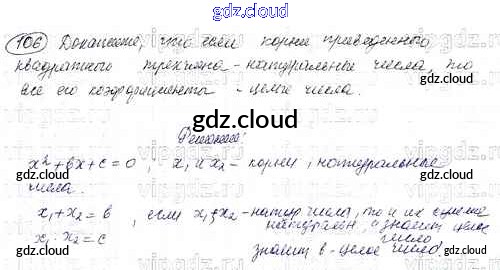 gdz.cloud
106 Докажите, что если корни приведенного
квадратного трехчлена - натуральные числа, то
все его коэффициенты - целые числа.
gdz.cloud
gdz.cloud
Решение:
gdz.cloud
x² + bx + c = 0, x₁ и x₂ - корни, натуральные
числа.
gdz.cloud
gdz.cloud
x₁ + x₂ = b, если x₁; x₂ - натур числа, то и их сумма
натуральн, а значит целое
x₁ · x₂ = c
число
значит b - целое число.
gdz.cloud